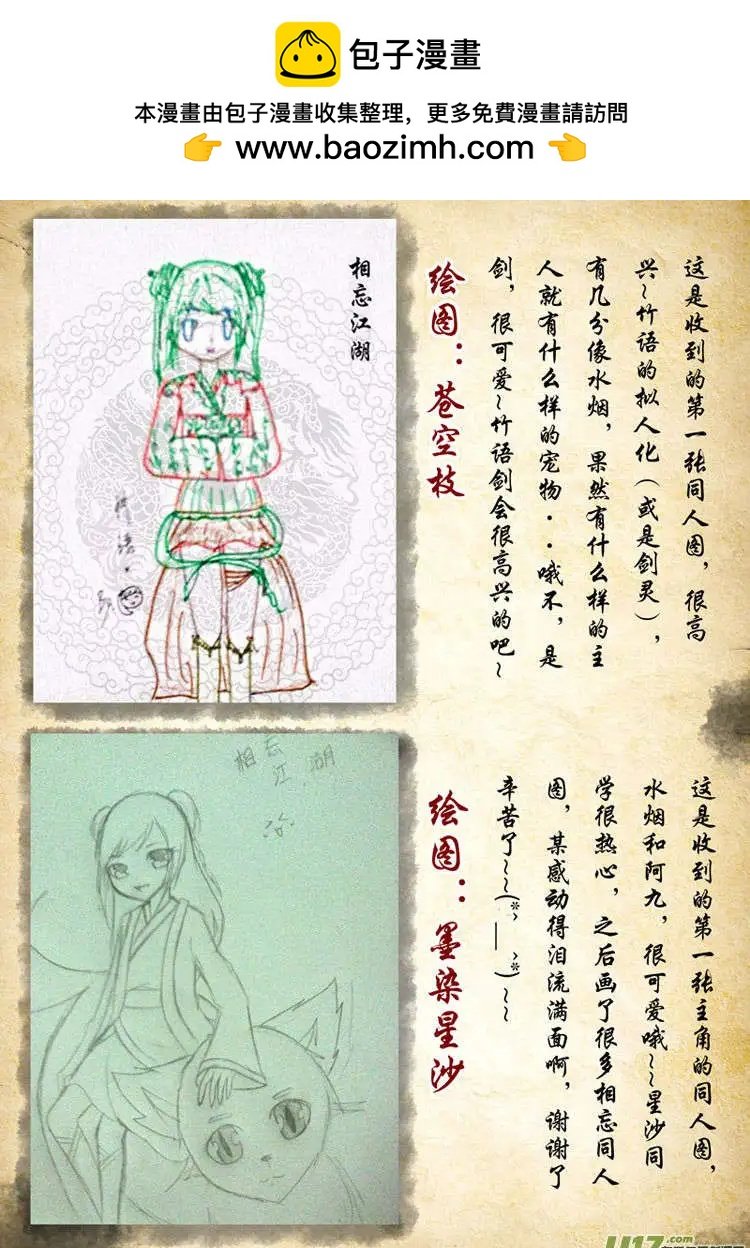 包子漫畫
本漫畫由包子漫畫收集整理，更多免費漫畫請訪問
👉 www.baozimh.com 👈
相忘江湖
竹语·
绘图：苍空枝
这是收到的第一张同人图，很高
兴~竹语的拟人化（或是剑灵），
有几分像水烟，果然有什么样的主
人就有什么样的宠物··哦不，是
剑，很可爱~竹语剑会很高兴的吧~
相忘
江湖
绘图：墨染星沙
这是收到的第一张主角的同人图，
水烟和阿九，很可爱哦~~星沙同
学很热心，之后画了很多相忘同人
图，某感动得泪流满面啊，谢谢了
辛苦了~~(*^__^*)~~
U17.com